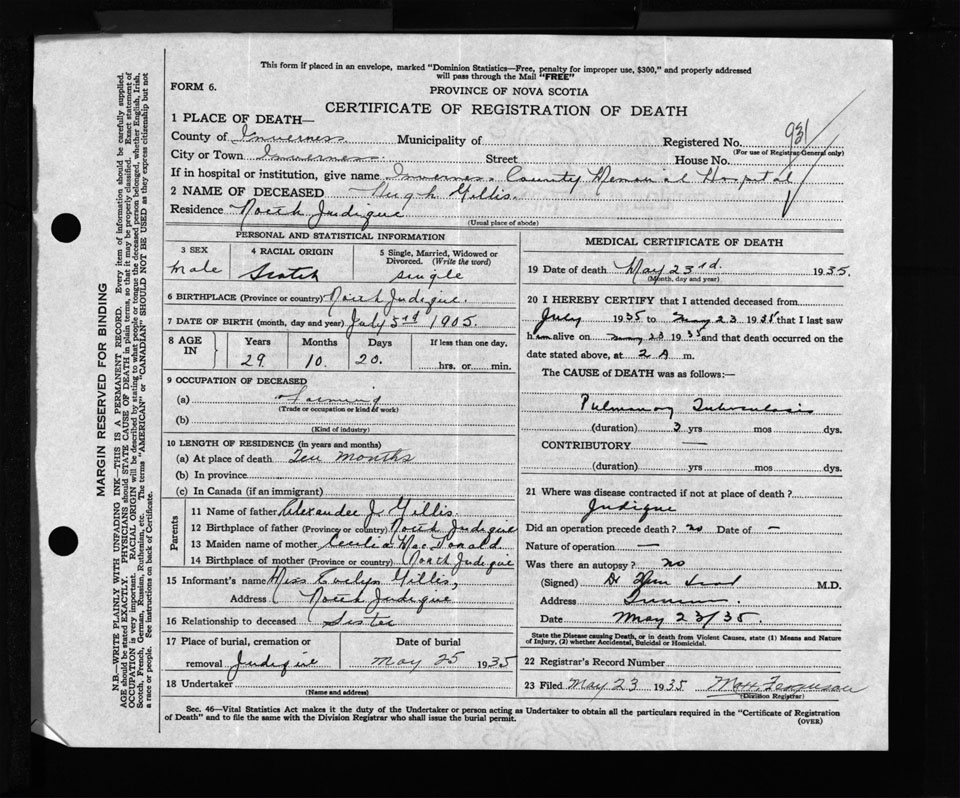 This form if placed in an envelope, marked "Dominion Statistics—Free, penalty for improper use, $300," and properly addressed
will pass through the Mail "FREE"
FORM 6.
PROVINCE OF NOVA SCOTIA
CERTIFICATE OF REGISTRATION OF DEATH
1 PLACE OF DEATH—
County of Inverness Municipality of Registered No. 931
(For use of Registrar General only)
City or Town Inverness Street House No.
If in hospital or institution, give name Inverness County Memorial Hospital
2 NAME OF DECEASED Hugh Gillis.
Residence North Judique
(Usual place of abode)
PERSONAL AND STATISTICAL INFORMATION
3 SEX 4 RACIAL ORIGIN 5 Single, Married, Widowed or Divorced. (Write the word)
male Scotch single
6 BIRTHPLACE (Province or country) North Judique.
7 DATE OF BIRTH (month, day and year) July 3rd 1905.
8 AGE IN Years Months Days If less than one day,
29 10. 20. hrs. or min.
9 OCCUPATION OF DECEASED
(a) Farming
(Trade or occupation or kind of work)
(b)
(Kind of industry)
10 LENGTH OF RESIDENCE (in years and months)
(a) At place of death Ten months
(b) In province
(c) In Canada (if an immigrant)
Parents
11 Name of father Alexander J. Gillis.
12 Birthplace of father (Province or country) North Judique
13 Maiden name of mother Cecilia MacDonald
14 Birthplace of mother (Province or country) North Judique
15 Informant's name Miss Evelyn Gillis,
Address North Judique
16 Relationship to deceased Sister
17 Place of burial, cremation or removal Judique Date of burial May 25 1935
18 Undertaker
(Name and address)
MEDICAL CERTIFICATE OF DEATH
19 Date of death May 23rd. 1935.
(Month, day and year)
20 I HEREBY CERTIFY that I attended deceased from
July 1935 to May 23 1935 that I last saw
h alive on 23 1935 and that death occurred on the
date stated above, at 2 A m.
The CAUSE of DEATH was as follows:—
Pulmonary Tuberculosis
(duration) 3 yrs mos dys.
CONTRIBUTORY —
(duration) yrs mos dys.
21 Where was disease contracted if not at place of death?
Judique
Did an operation precede death? no Date of —
Nature of operation —
Was there an autopsy? no
(Signed) Dr M.D.
Address
Date May 23/35.
State the Disease causing Death, or in death from Violent Causes, state (1) Means and Nature
of Injury, (2) whether Accidental, Suicidal or Homicidal.
22 Registrar's Record Number
23 Filed May 23 1935
(Division Registrar)
Sec. 46—Vital Statistics Act makes it the duty of the Undertaker or person acting as Undertaker to obtain all the particulars required in the "Certificate of Registration
of Death" and to file the same with the Division Registrar who shall issue the burial permit.
(OVER)
MARGIN RESERVED FOR BINDING
N.B.—WRITE PLAINLY WITH UNFADING INK—THIS IS A PERMANENT RECORD. Every item of information should be carefully supplied.
AGE should be stated EXACTLY. PHYSICIANS should STATE CAUSE OF DEATH in plain terms, so that it may be properly classified. Exact statement of
OCCUPATION is very important. RACIAL ORIGIN will be described by stating to what people or tongue the deceased person belonged, whether English, Irish,
Scotch, French, German, Russian, Ruthenian, etc. The terms "AMERICAN" or "CANADIAN" SHOULD NOT BE USED as they express citizenship but not
a race or people. See instructions on back of Certificate.